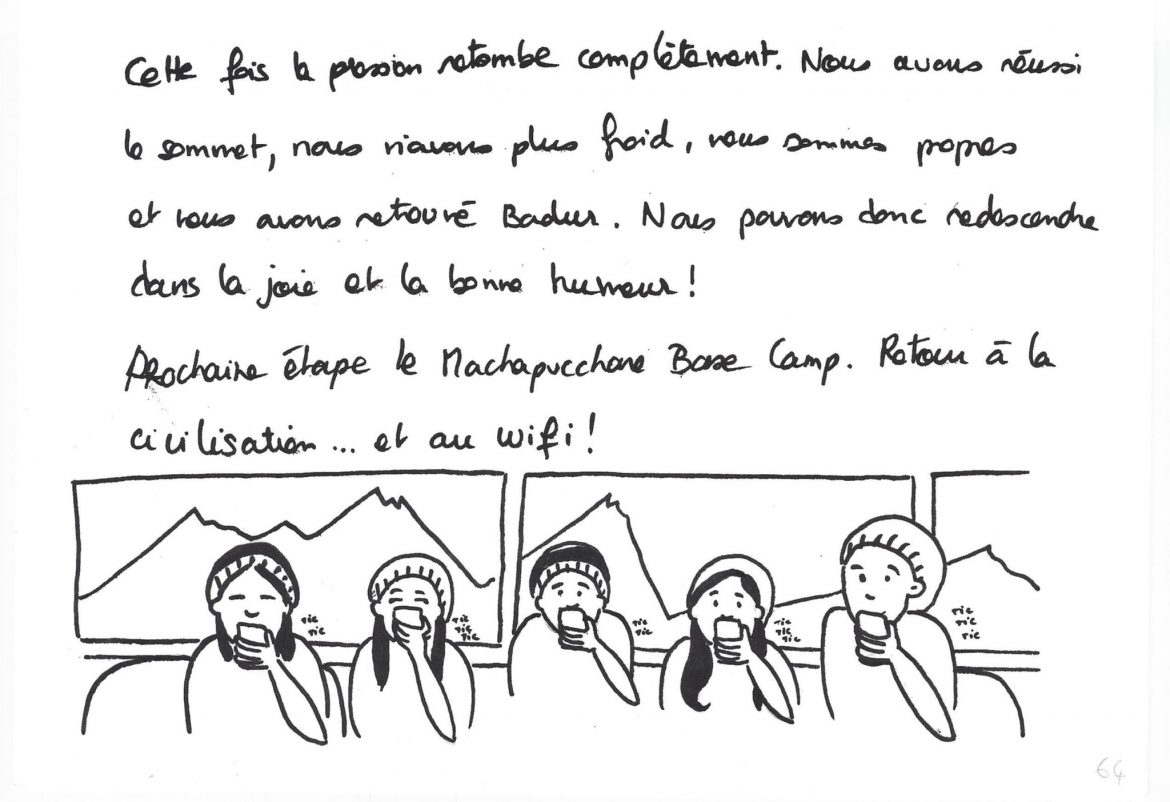 Cette fois la pression retombe complètement. Nous avons réussi
le sommet, nous n'avons plus froid, nous sommes propres
et nous avons retrouvé Badur. Nous pouvons donc redescendre
dans la joie et la bonne humeur !
Prochaine étape le Machapucchare Base Camp. Retour à la
civilisation... et au wifi !
TIC
TIC
TIC
TIC
TIC
TIC
TIC
TIC
TIC
TIC
TIC
TIC
TIC
64